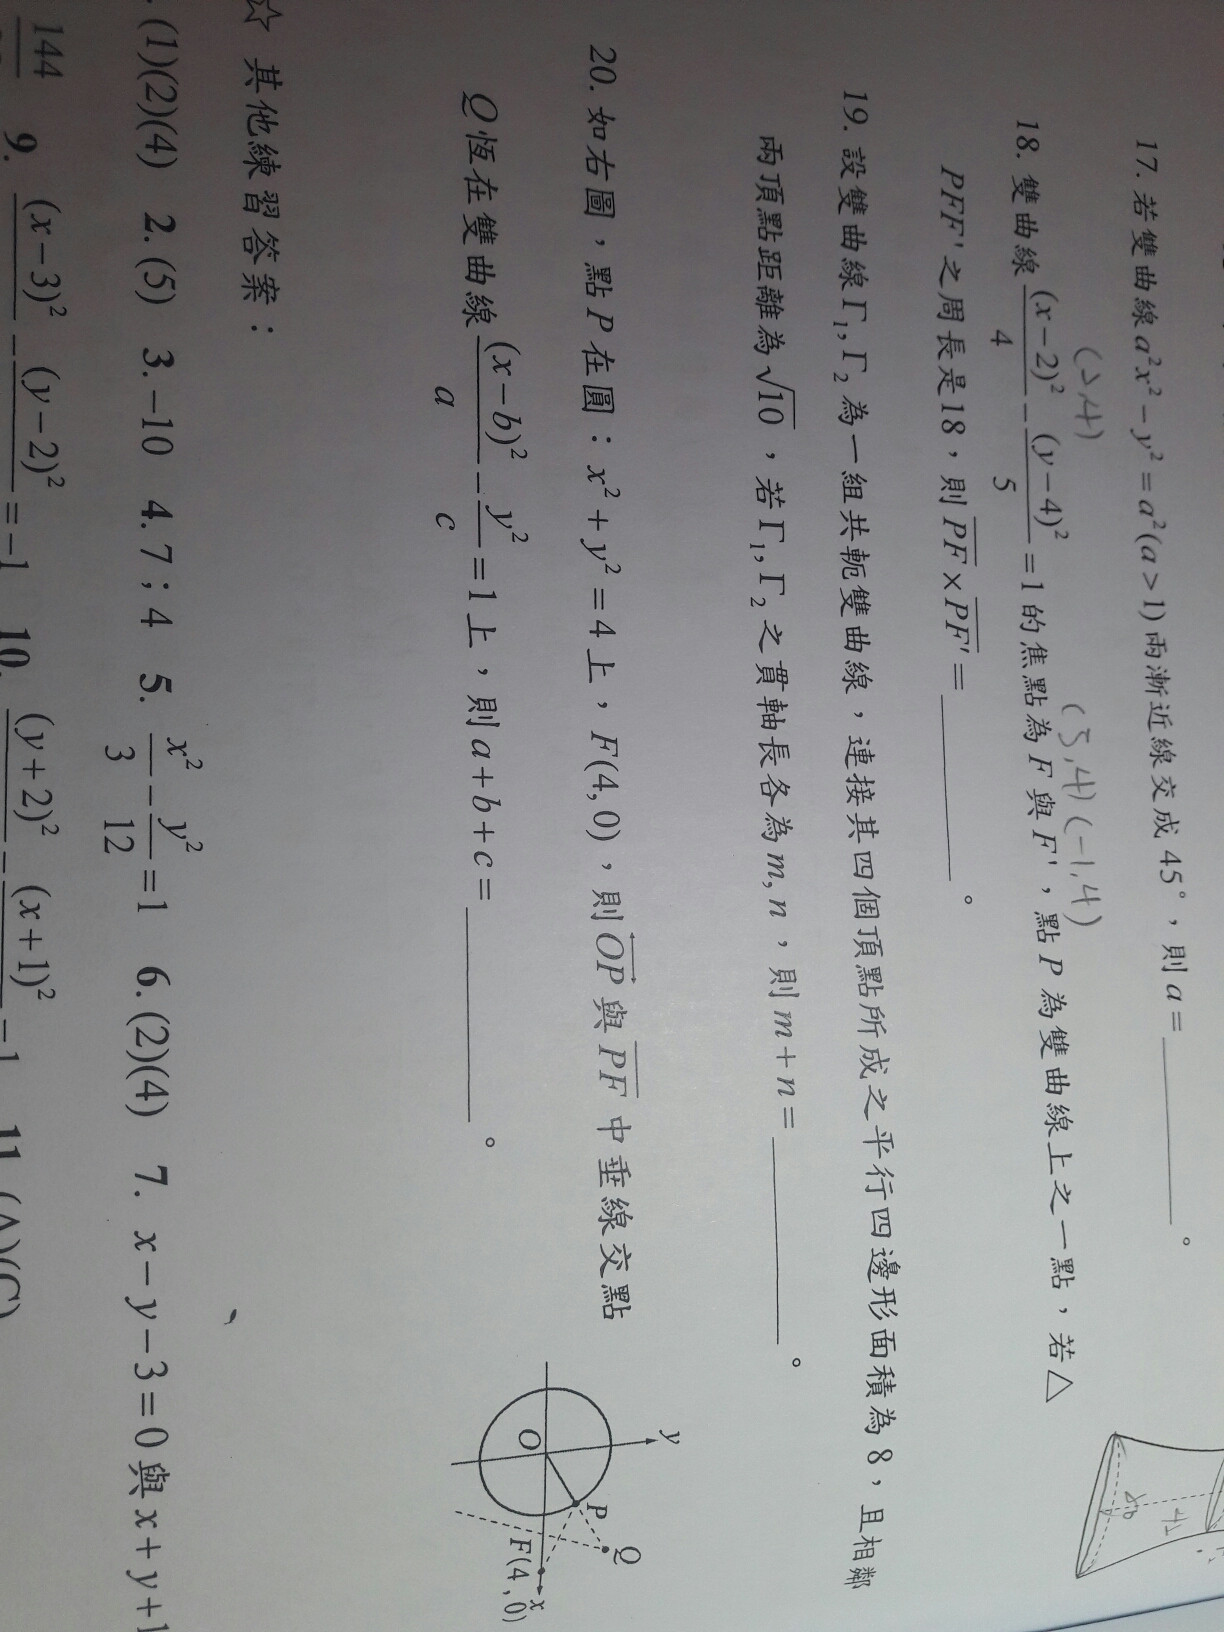 17. 若雙曲線 a²x² − y² = a² (a > 1) 兩漸近線交成 45°，則 a = ________。
(2,4)
(5,4) (−1,4)
18. 雙曲線 (x−2)²/4 − (y−4)²/5 = 1 的焦點為 F 與 F'，點 P 為雙曲線上之一點，若△
PFF' 之周長是18，則 PF × PF' = ________。
19. 設雙曲線 Γ₁, Γ₂ 為一組共軛雙曲線，連接其四個頂點所成之平行四邊形面積為 8，且相鄰
兩頂點距離為 √10，若 Γ₁, Γ₂ 之貫軸長各為 m, n，則 m + n = ________。
20. 如右圖，點 P 在圓：x² + y² = 4 上，F(4, 0)，則 OP 與 PF 中垂線交點
Q 恆在雙曲線 (x−b)²/a − y²/c = 1 上，則 a + b + c = ________。
y
O
P
Q
F(4, 0)
x
☆ 其他練習答案：
(1)(2)(4) 2. (5) 3. −10 4. 7；4 5. x²/3 − y²/12 = 1 6. (2)(4) 7. x − y − 3 = 0 與 x + y + 1
144 9. (x−3)² − (y−2)² = −1 10. (y+2)² − (x+1)² = 1 11. (A)(C)